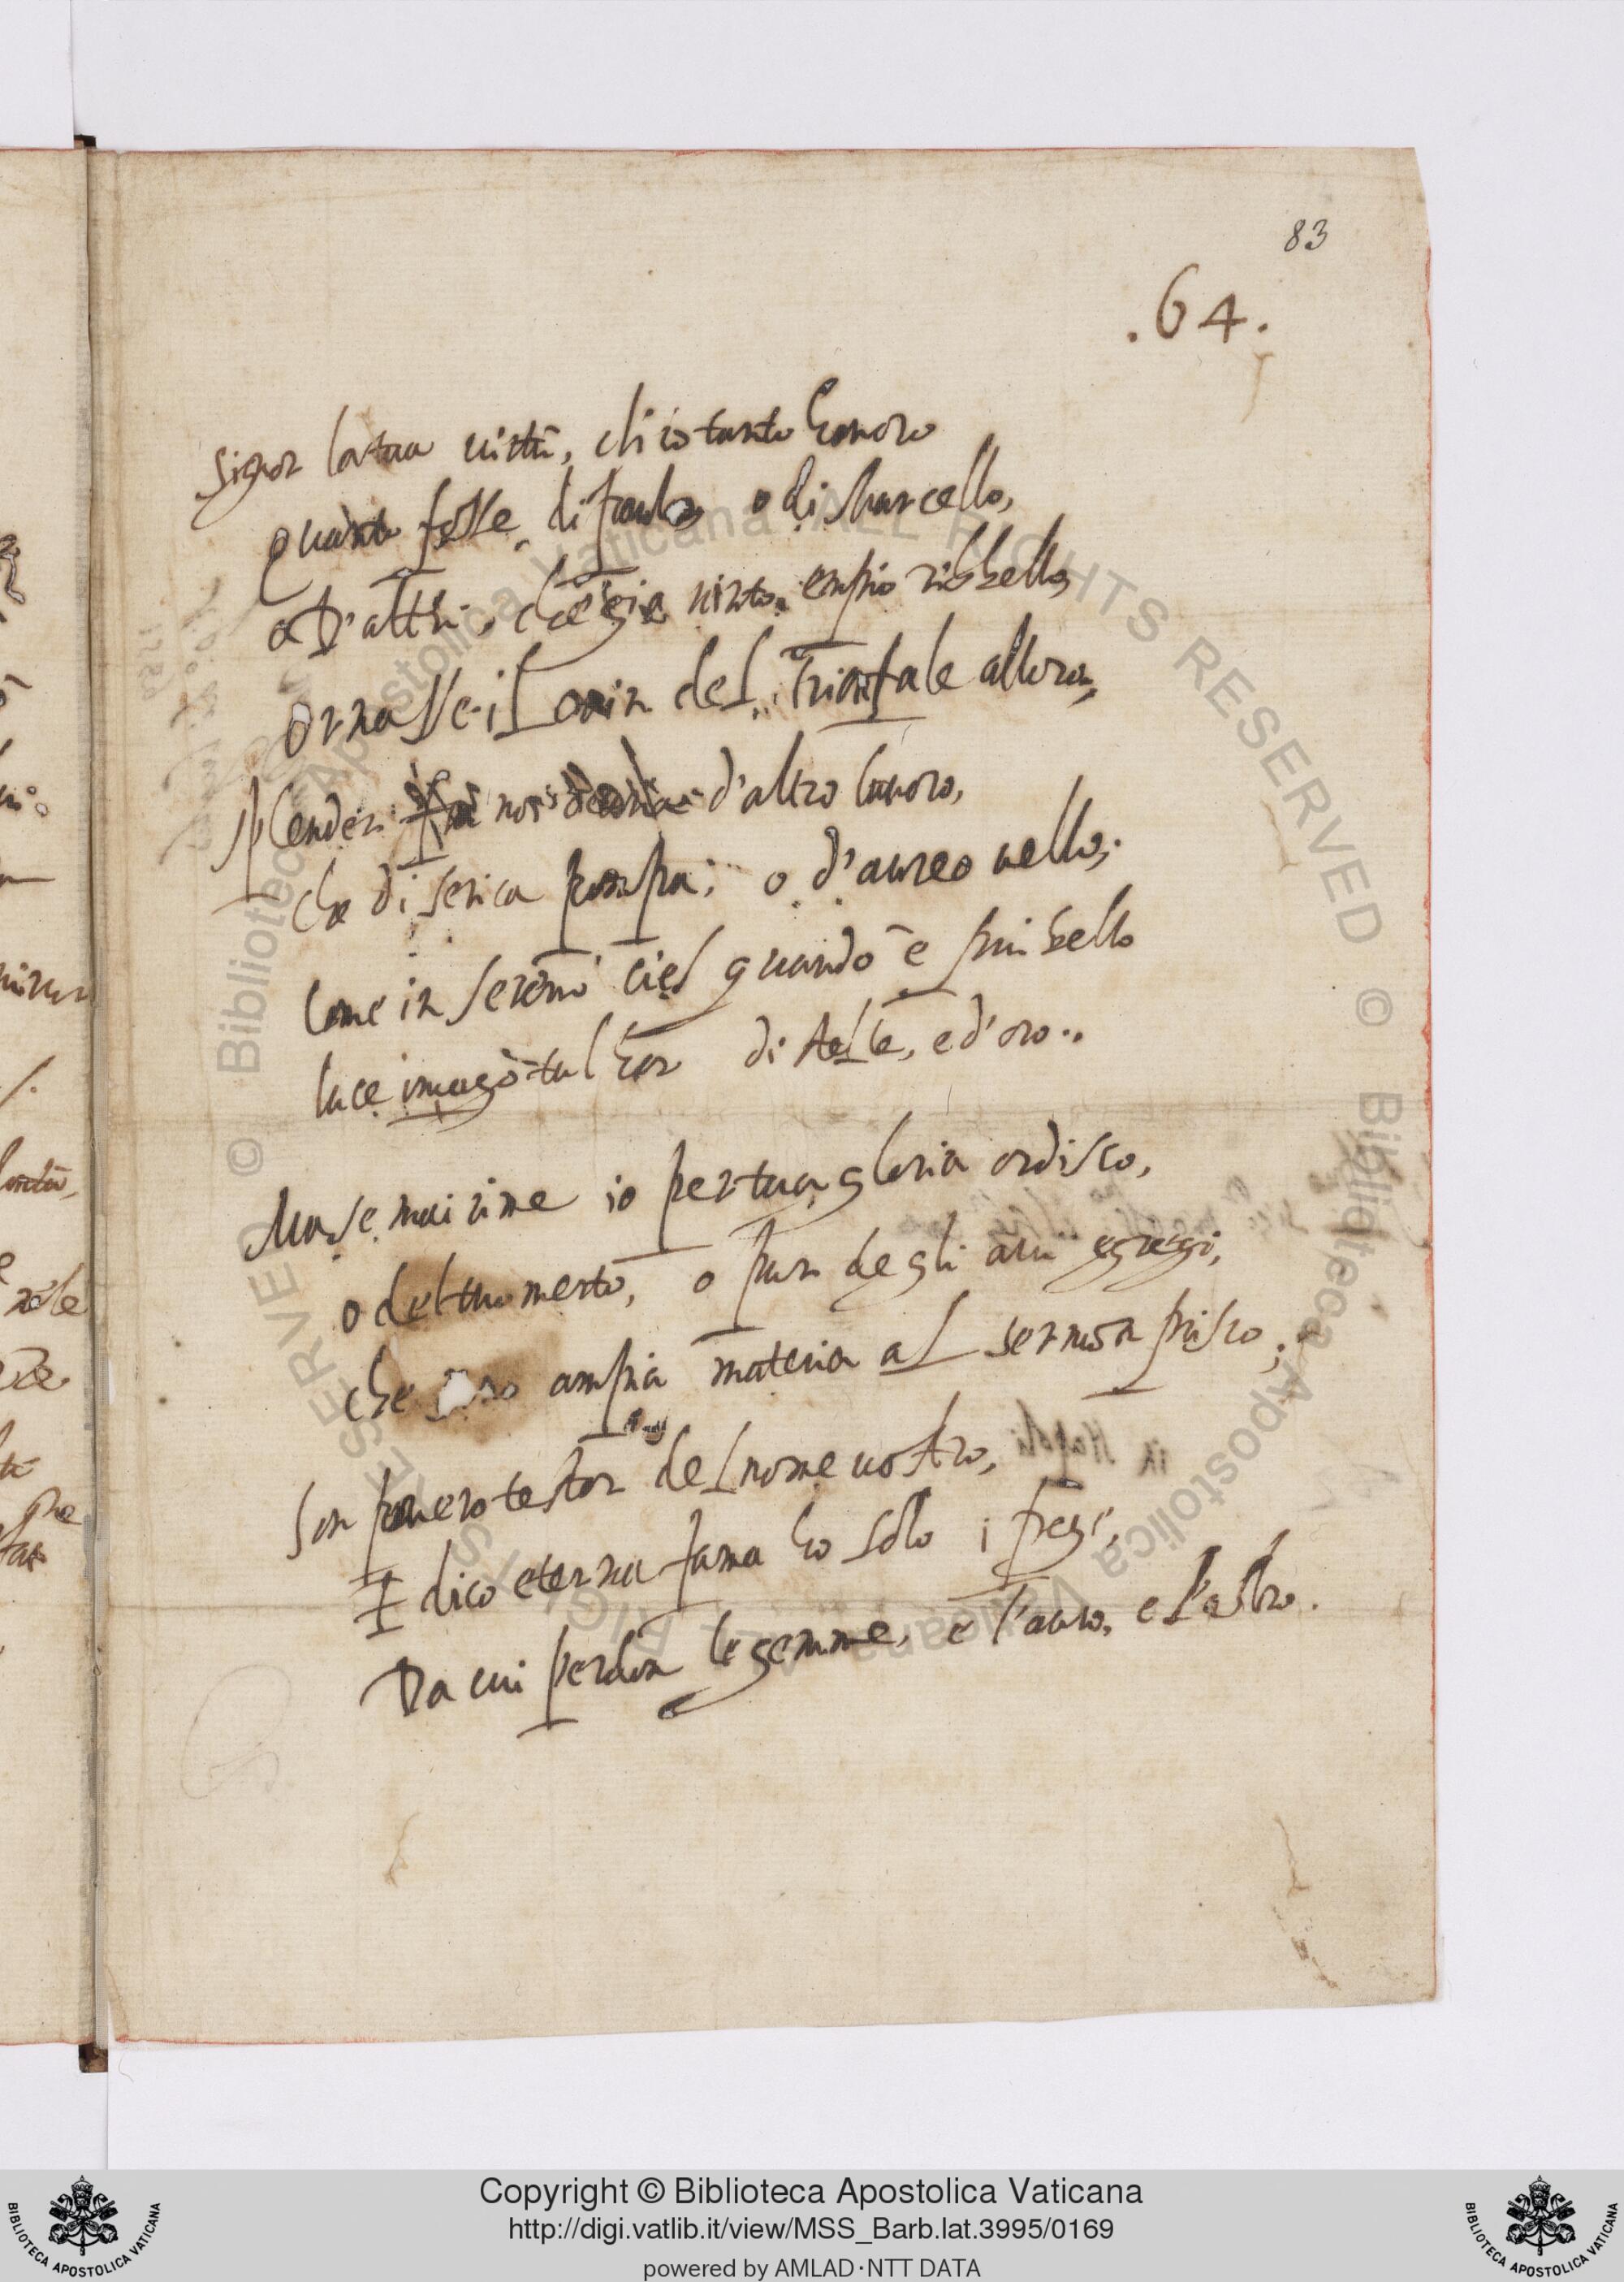 83
.64.
Signor la tua virtù, ch'io tanto honoro
Quanto fosse di Paulo o di Marcello,
o D'altri, che già vinto empio ribbello
ornasse il crin del Trionfale alloro,
splender noi d'altro lavoro,
che di serica pompa; o d'aureo vello;
Come in sereno ciel quando è piu bello
luce imago tal hor di stelle, e d'oro..
Ma se mai rime io per tua gloria ordisco,
o del tuo merto, o pur degli avi egregi,
che sono ampia materia al sermon prisco;
Son povero testor del nome vostro,
E dico eterna fama ho solo i fregi,
Da cui perdon le gemme, e l'auro, e l'ostro.
Copyright © Biblioteca Apostolica Vaticana
http://digi.vatlib.it/view/MSS_Barb.lat.3995/0169
powered by AMLAD·NTT DATA
BIBLIOTECA APOSTOLICA VATICANA
BIBLIOTECA APOSTOLICA VATICANA